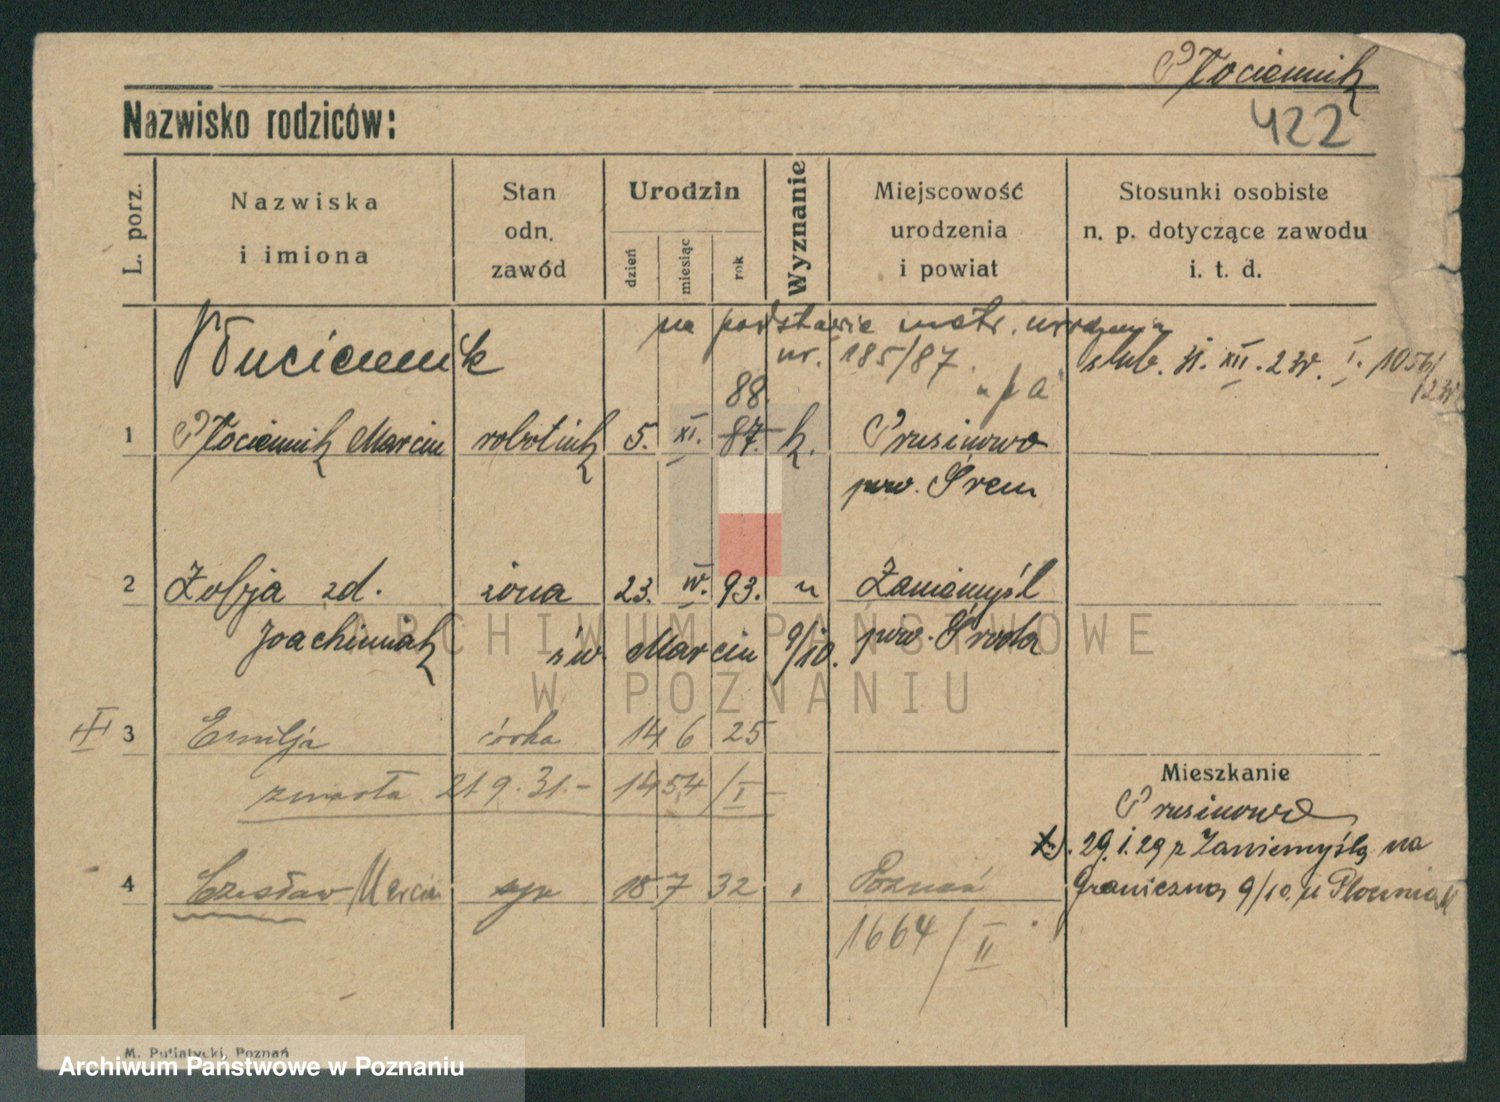 Płociennik
422
Nazwisko rodziców:
L. porz.
Nazwiska
i imiona
Stan
odn.
zawód
Urodzin
dzień
miesiąc
rok
Wyznanie
Miejscowość
urodzenia
i powiat
Stosunki osobiste
n. p. dotyczące zawodu
i. t. d.
na podstawie metr. urodzenia
Płuciennik
nr. 185/87.
ślub. XII. I. 1056/
88.
1 Płociennik Marcin robotnik 5. XI. 87. k. Prusinowo
pow. Śrem
2 Zofja zd. żona 23. IV. 93. " Zaniemyśl
Joachimiak św. Marcin 9/10. pow. Środa
3 Emilja córka 14 6 25
zmarła 21. 9. 31.- 1454/I
Mieszkanie
Prusinowo
x). 29. I. 29 z Zaniemyśla na
4 Czesław Marcin syn 18 7 32 " Poznań
Graniczna 9/10. u
1664/II
M. Putiatycki, Poznań
ARCHIWUM PAŃSTWOWE
W POZNANIU
Archiwum Państwowe w Poznaniu